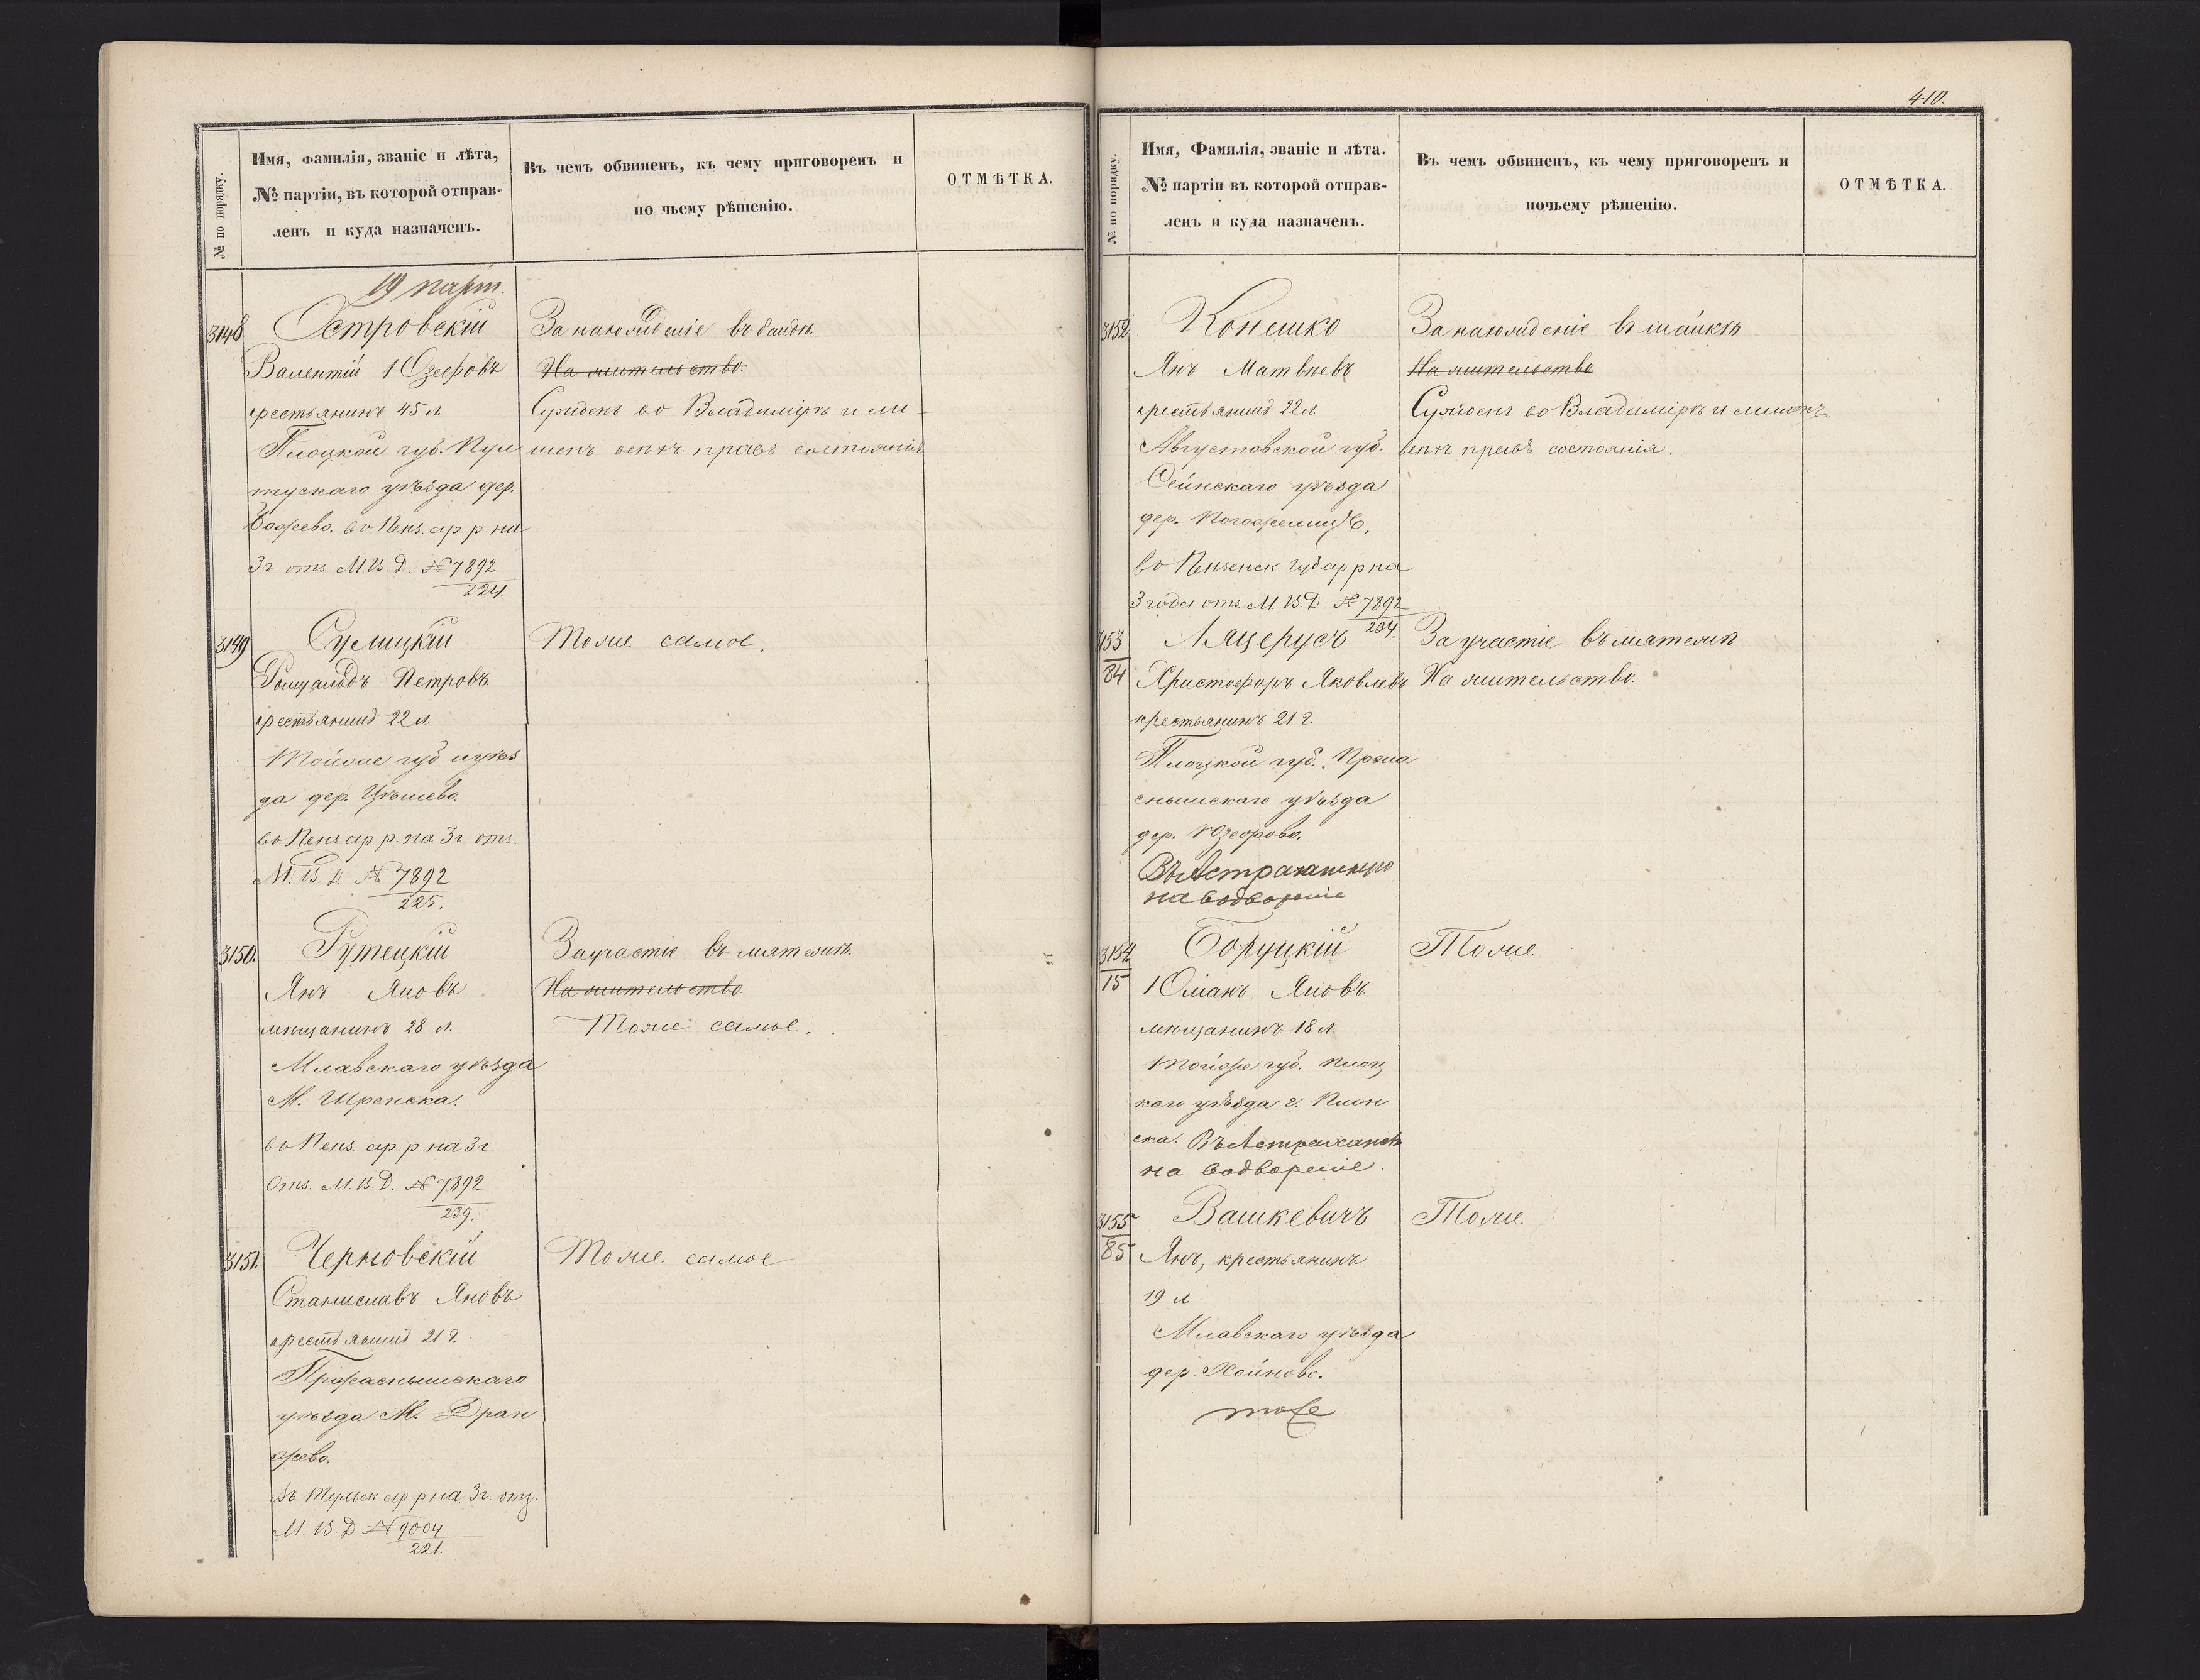 410.
№ по порядку.
Имя, фамилія, званіе и лѣта,
№ партіи, въ которой отправ-
ленъ и куда назначенъ.
Въ чемъ обвиненъ, къ чему приговоренъ и
по чьему рѣшенію.
ОТМѢТКА.
19 парт.
3148
Островскій
Валентій Юзефовъ
крестьянинъ 45 л.
Плоцкой губ. Пул
тускаго уѣзда дер.
во Пенз. ар. р. на
3 г. отз. М. В. Д. № 7892
224.
За нахожденіе въ бандѣ.
На жительство.
Сужденъ во Владимірѣ и ли-
шенъ всѣхъ правъ состоянія
3149
Сулицкій
Ромуальдъ Петровъ
крестьянинъ 22 л.
Тойже губ и уѣз
да дер.
во Пенз ар р. на 3 г. отз.
М. В. Д. № 7892
225.
Тоже самое.
3150.
Рутецкій
Янъ Яновъ
мѣщанинъ 28 л.
Млавскаго уѣзда
М. Шренска.
во Пенз. ар. р. на 3 г.
Отз. М. В. Д. № 7892
239.
За участіе въ мятежѣ.
На жительство
Тоже самое.
3151.
Черновскій
Станиславъ Яновъ
крестьянинъ 21 г.
Пржаснышскаго
уѣзда М. Дран
жево.
Въ Тульск. ар р на 3 г. отз.
М. В Д № 9004
221.
Тоже самое
№ по порядку.
Имя, Фамилія, званіе и лѣта.
№ партіи въ которой отправ-
ленъ и куда назначенъ.
Въ чемъ обвиненъ, къ чему приговоренъ и
почьему рѣшенію.
ОТМѢТКА.
3152
Конешко
Янъ Матвѣевъ
крестьянинъ 22 л
Августовской губ.
Сейнскаго уѣзда
дер.
во Пензенск губ ар р на
3 года отз. М. В. Д. № 7892
234.
За нахожденіе въ шайкѣ
На жительство
Сужденъ во Владимірѣ и лишенъ
всѣхъ правъ состоянія.
3153
84
Ляцерусъ
Христофоръ Яковлевъ
крестьянинъ 21 г.
Плоцкой губ. Пржа
снышскаго уѣзда
дер. Юзефово.
Въ Астраханскую
на водвореніе
За участіе въ мятежѣ
На жительство.
3154
15
Боруцкій
Юліанъ Яновъ
мѣщанинъ 18 л.
Тойже губ. Плоц
каго уѣзда г. Плон
ска. Въ Астрахань
на водвореніе.
Тоже.
3155
85
Вашкевичъ
Янъ, крестьянинъ
19 л
Млавскаго уѣзда
дер. Хойново.
тоже
Тоже.